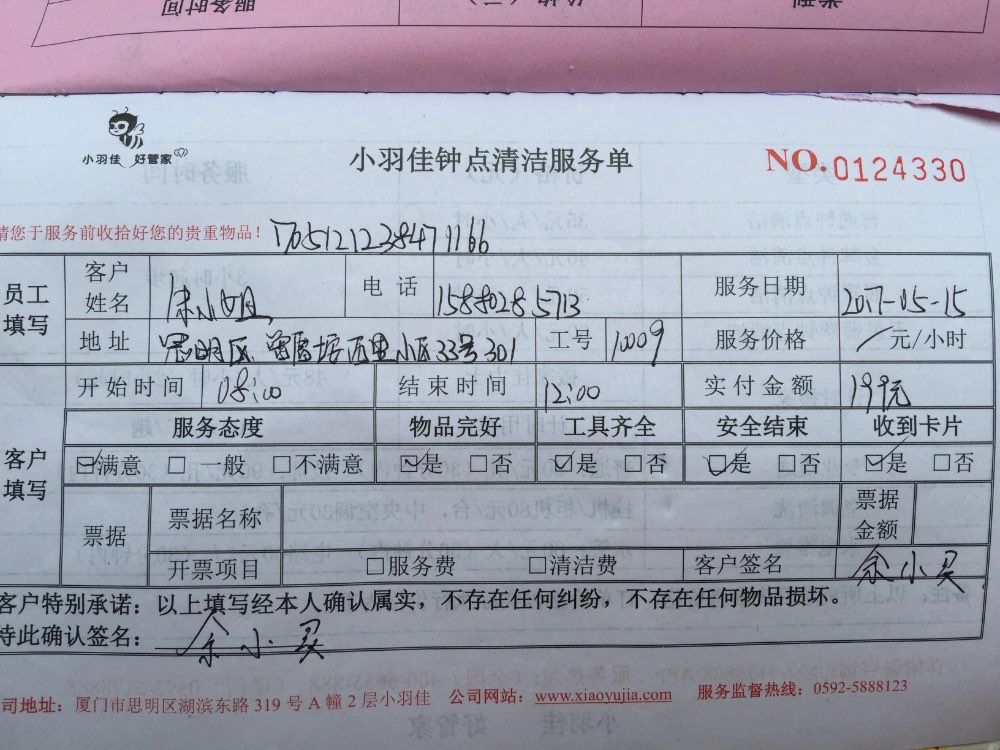 服务时间 价格（元） 类别
小羽佳 好管家
小羽佳钟点清洁服务单
NO.0124330
请您于服务前收拾好您的贵重物品！
员工填写
客户姓名 小姐 电话 15880285713 服务日期 2017-05-15
地址 思明区 西里小区33号301 工号 10009 服务价格 / 元/小时
开始时间 08:00 结束时间 12:00 实付金额 199元
客户填写
服务态度 物品完好 工具齐全 安全结束 收到卡片
☑满意 □一般 □不满意 ☑是 □否 ☑是 □否 ☑是 □否 ☑是 □否
票据 票据名称 票据金额
开票项目 □服务费 □清洁费 客户签名 余小
客户特别承诺：以上填写经本人确认属实，不存在任何纠纷，不存在任何物品损坏。
特此确认签名： 余小
公司地址：厦门市思明区湖滨东路319号A幢2层小羽佳 公司网站：www.xiaoyujia.com 服务监督热线：0592-5888123